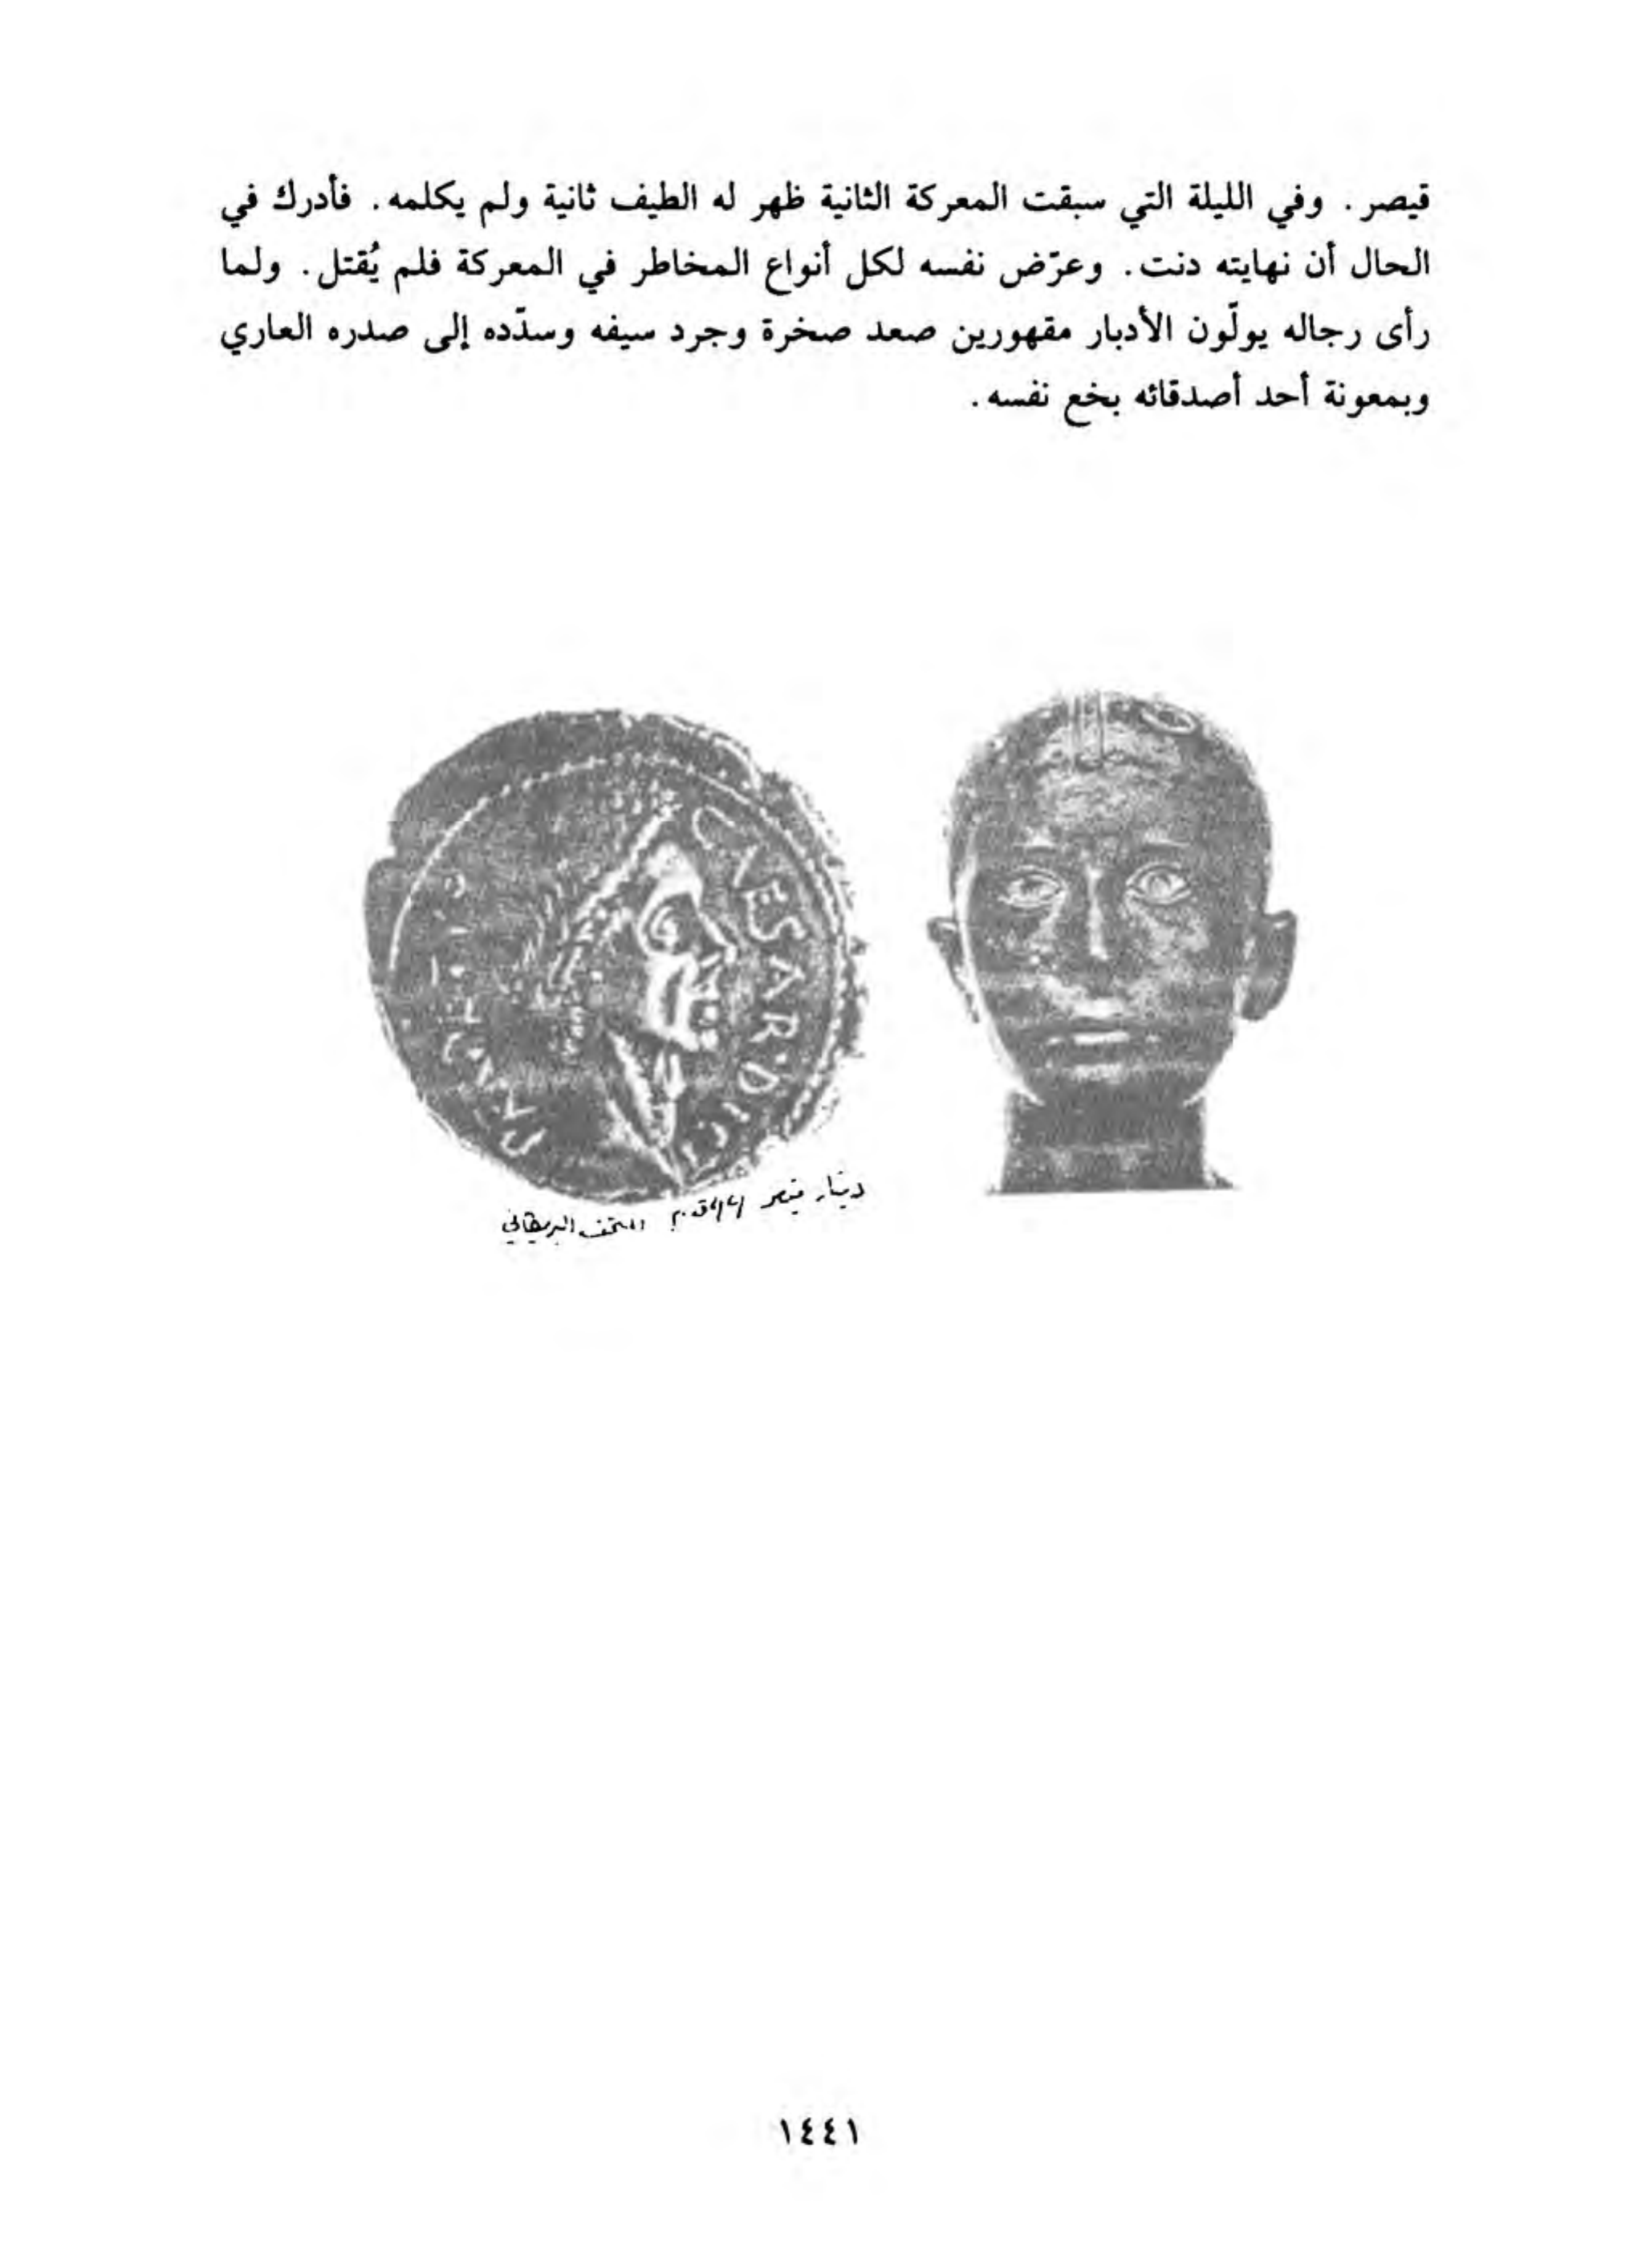 قيصر. وفي الليلة التي سبقت المعركة الثانية ظهر له الطيف ثانية ولم يكلمه. فأدرك في
الحال أن نهايته دنت. وعرّض نفسه لكل أنواع المخاطر في المعركة فلم يُقتل. ولما
رأى رجاله يولّون الأدبار مقهورين صعد صخرة وجرد سيفه وسدّده إلى صدره العاري
وبمعونة أحد أصدقائه بخع نفسه.
CAESAR·DICT
دينار قيصر ٤٤ ق.م المتحف البريطاني
١٤٤١